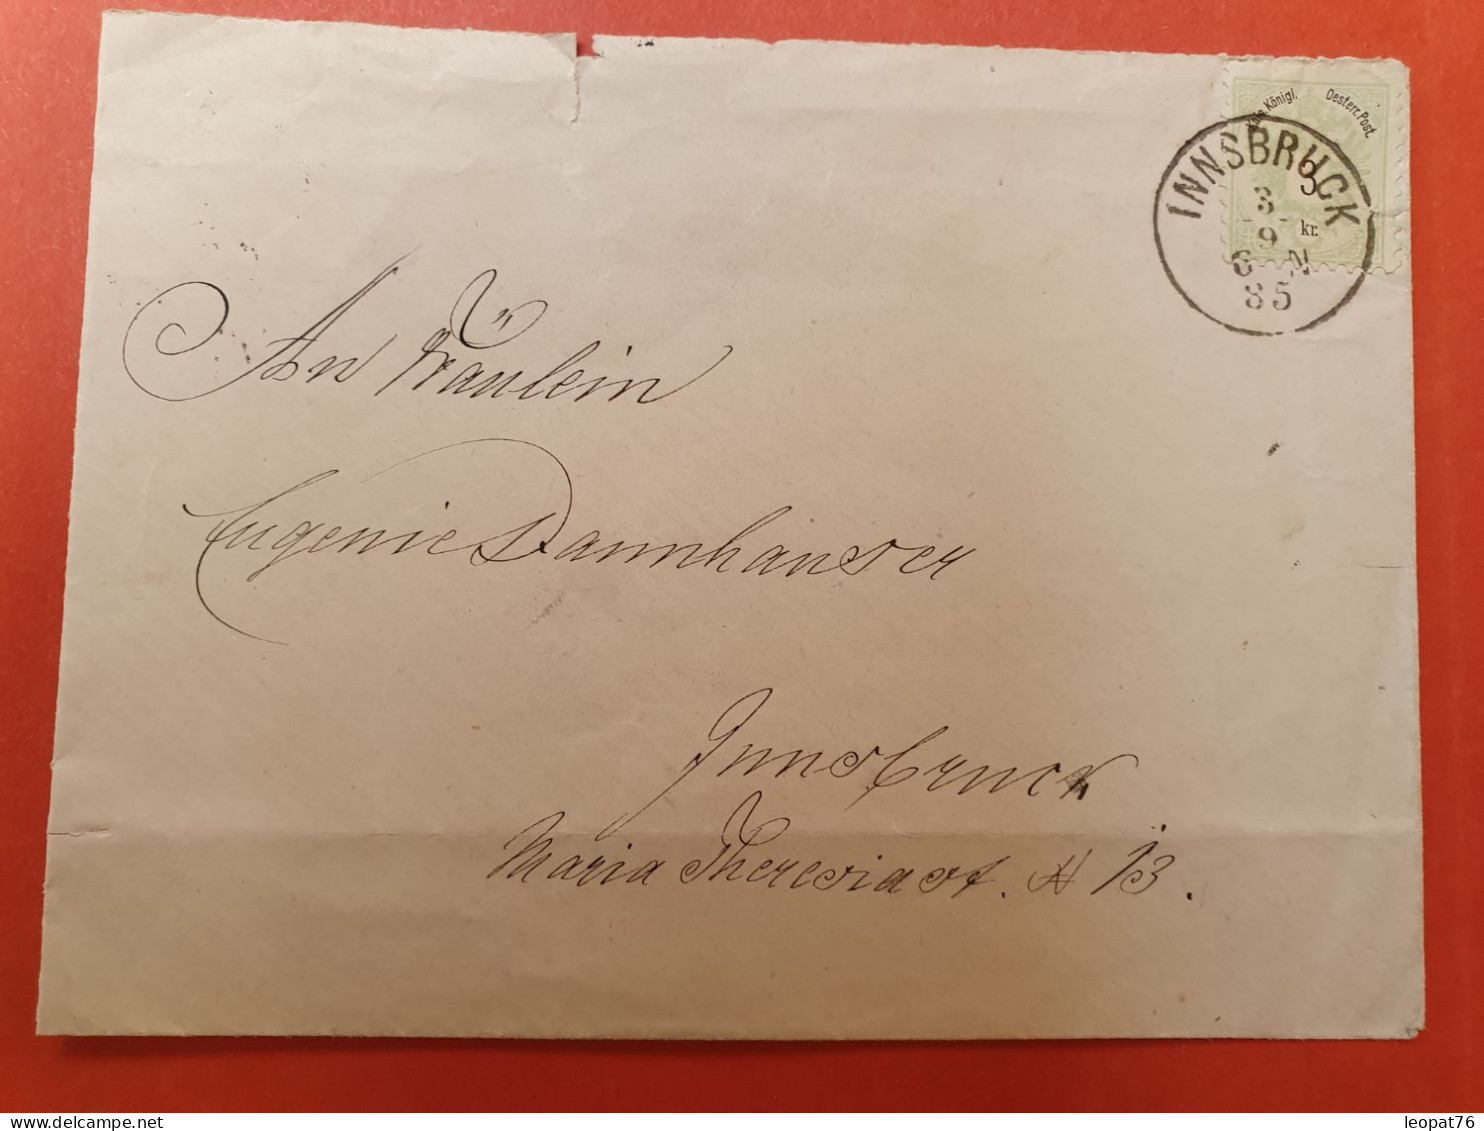 Kais. Königl. Oesterr. Post.
3 kr.
INNSBRUCK
3
9
6 N
85
An Fräulein
Eugenie Dannhauser
Innsbruck
Maria Theresiast. N 13.
leopat76